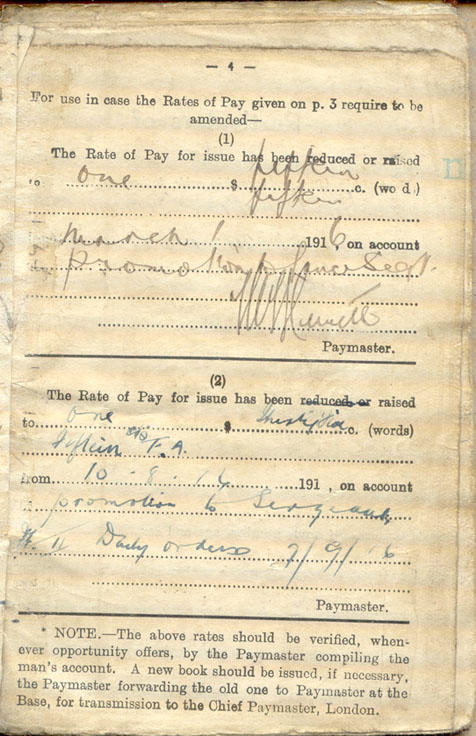 — 4 —
For use in case the Rates of Pay given on p. 3 require to be
amended—
(1)
The Rate of Pay for issue has been reduced or raised
to one $ fifteen c. (words)
fifteen
March 1 1916, on account
promotion to Lance Sergt.
Paymaster.
(2)
The Rate of Pay for issue has been reduced or raised
to one $ thirty five c. (words)
fifteen cts F.A.
from 10 . 8 . 16 191 , on account
promotion to Sergeant
Daily orders 7/9/16
Paymaster.
* NOTE.—The above rates should be verified, when-
ever opportunity offers, by the Paymaster compiling the
man's account. A new book should be issued, if necessary,
the Paymaster forwarding the old one to Paymaster at the
Base, for transmission to the Chief Paymaster, London.